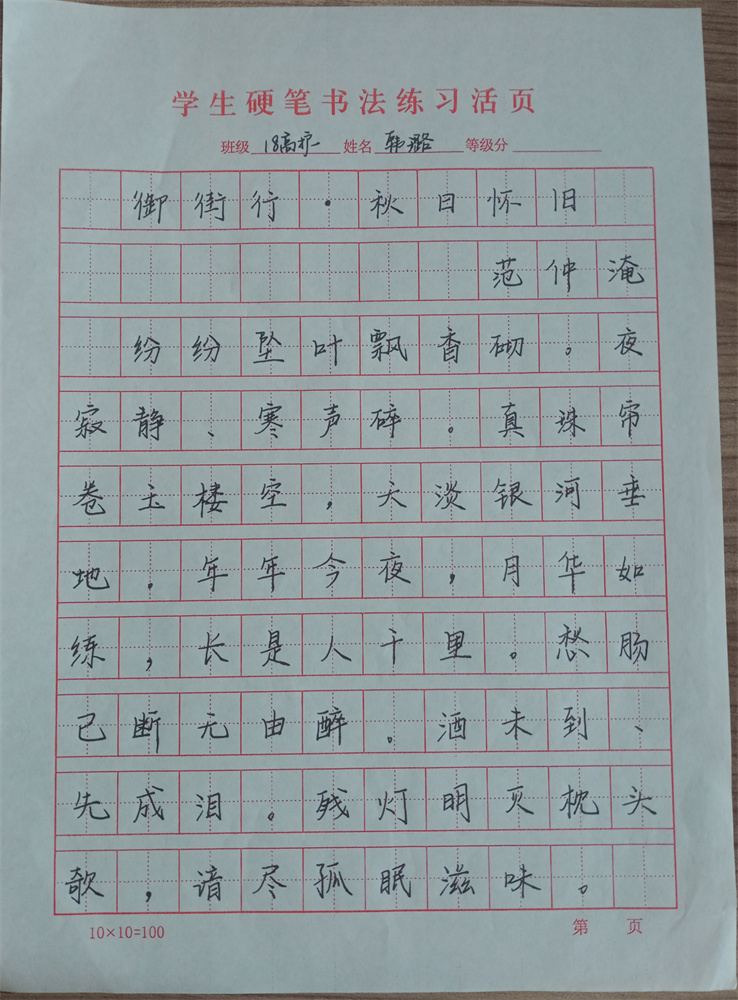 学生硬笔书法练习活页
班级 18高护一 姓名 韩璐 等级分
御街行·秋日怀旧
范仲淹
纷纷坠叶飘香砌。夜
寂静、寒声碎。真珠帘
卷玉楼空，天淡银河垂
地。年年今夜，月华如
练，长是人千里。愁肠
已断无由醉。酒未到、
先成泪。残灯明灭枕头
欹，谙尽孤眠滋味。
10×10=100 第 页